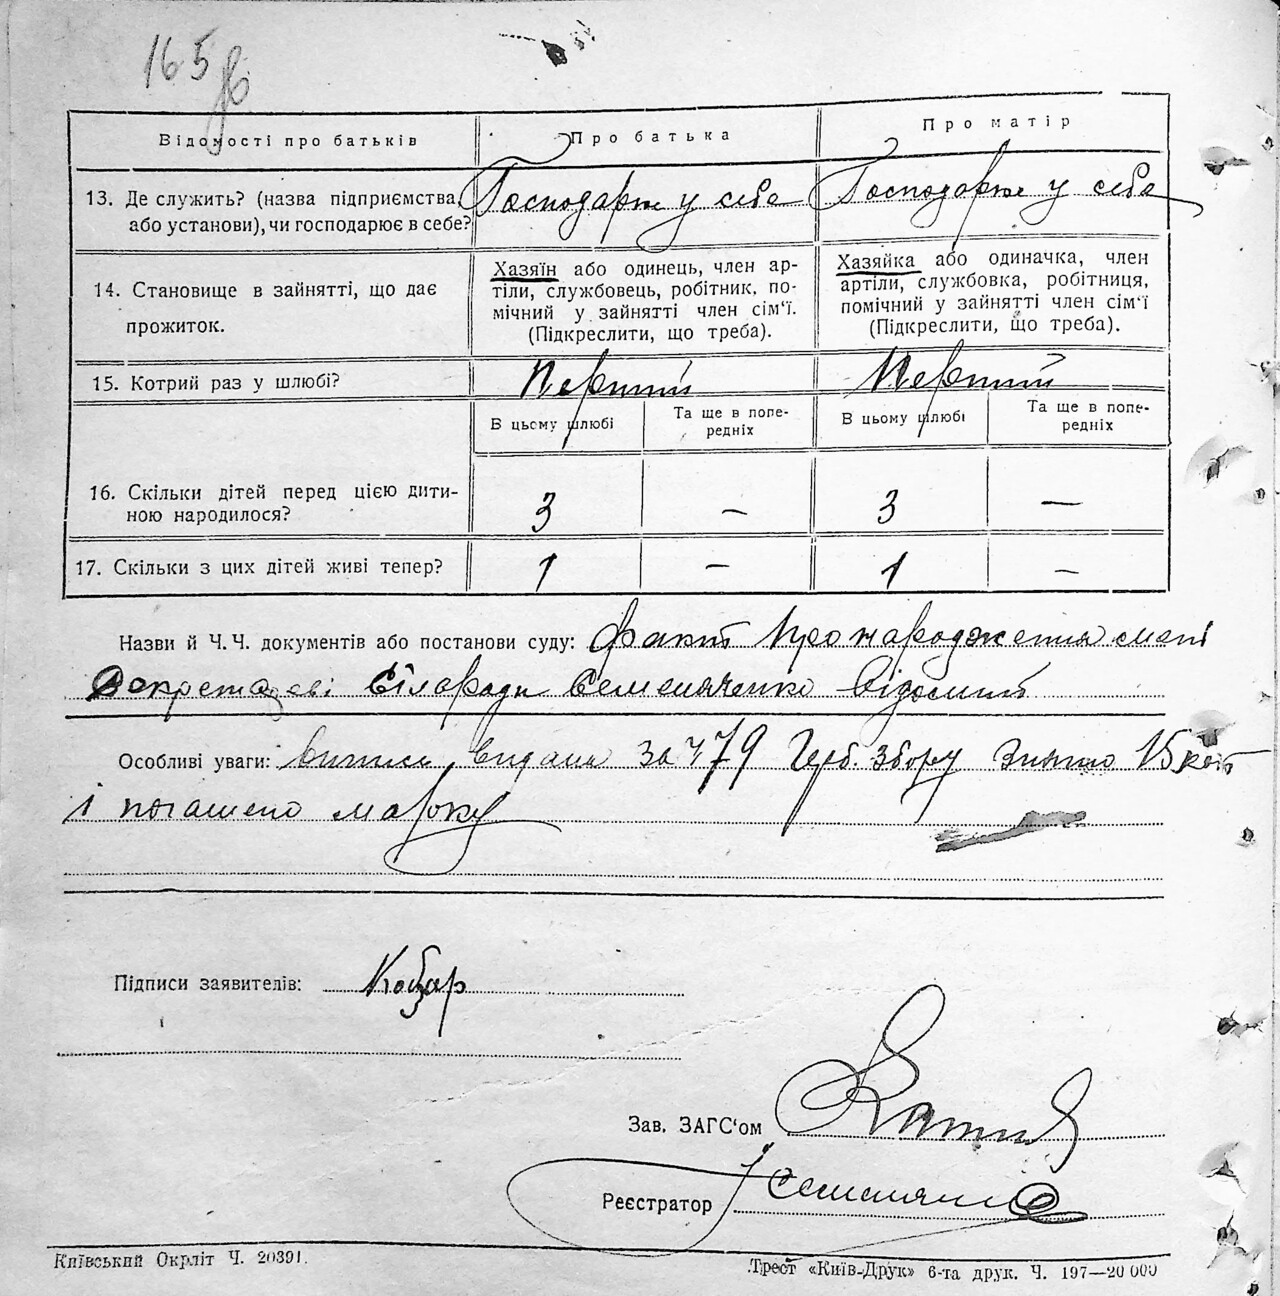 165 зв
Відомості про батьків
Про батька
Про матір
13. Де служить? (назва підприємства,
або установи), чи господарює в себе?
Господарює у себе
Господарює у себе
14. Становище в зайнятті, що дає
прожиток.
Хазяїн або одинець, член ар-
тіли, службовець, робітник, по-
мічний у зайнятті член сім'ї.
(Підкреслити, що треба).
Хазяйка або одиначка, член
артіли, службовка, робітниця,
помічний у зайнятті член сім'ї
(Підкреслити, що треба).
15. Котрий раз у шлюбі?
Перший
Перший
В цьому шлюбі
Та ще в попе-
редніх
В цьому шлюбі
Та ще в попе-
редніх
16. Скільки дітей перед цією дити-
ною народилося?
3 – 3 —
17. Скільки з цих дітей живі тепер?
1 – 1 –
Назви й Ч. Ч. документів або постанови суду: факт про народження мені
Секретареві Сілоради Семеняченко відомий
Особливі уваги: випись видана за ч 79 Герб. збору знято 15 коп
і погашено марку
Підписи заявителів: Кобзар
Зав. ЗАГС'ом
Реєстратор
Київський Окрліт Ч. 20391.
Трест «Київ-Друк» 6-та друк. Ч. 197—20 000